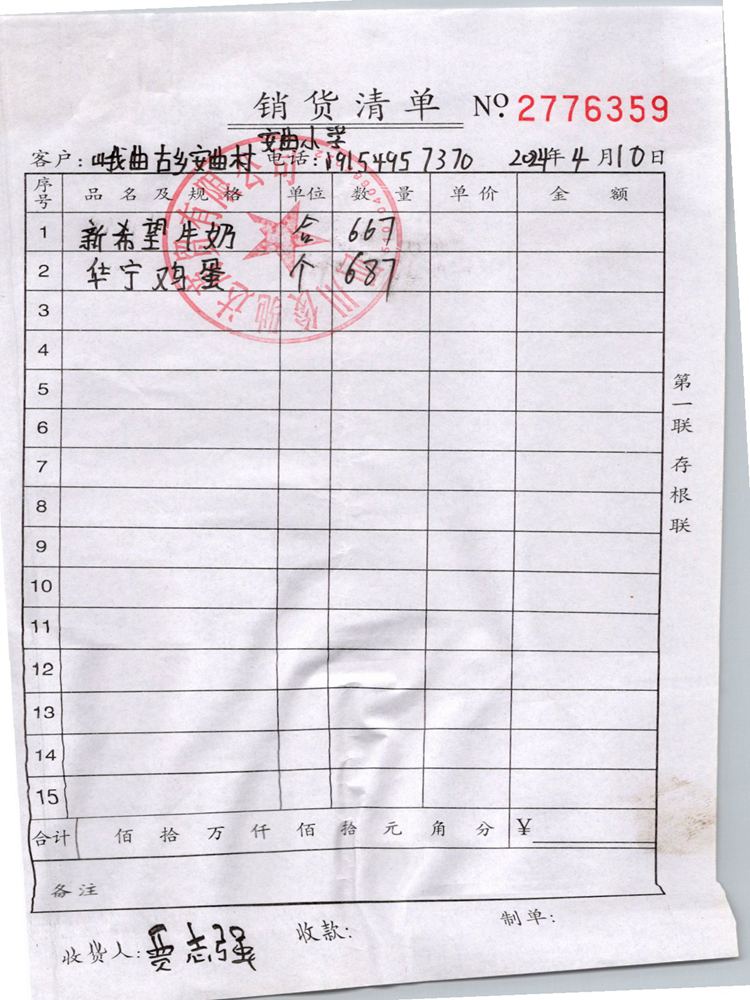 销货清单 №. 2776359
安曲小学
客户:哦曲古乡安曲村 电话:19154957370 2024年4月10日
序号 品名及规格 单位 数量 单价 金额
1 新希望牛奶 合 667
2 华宁鸡蛋 个 687
3
4
5
6
7
8
9
10
11
12
13
14
15
合计 佰 拾 万 仟 佰 拾 元 角 分 ¥
备注
收货人:贾志强 收款: 制单:
第一联 存根联